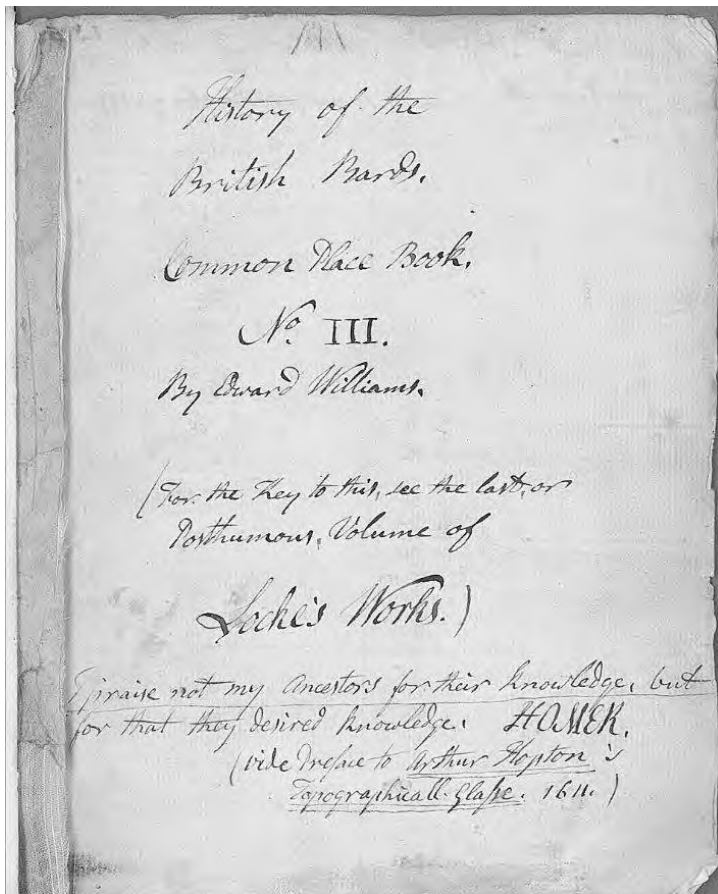 History of the
British Bards.
Common Place Book.
No. III.
By Edward Williams.
(For the Key to this, see the last, or
Posthumous, Volume of
Locke's Works.)
I praise not my Ancestors for their knowledge, but
for that they desired knowledge. HOMER.
(vide Preface to Arthur Hopton's
Topographicall-Glaſse. 1611.)